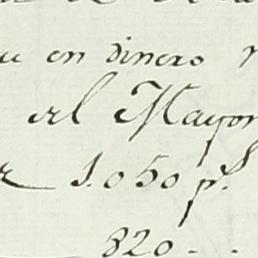 en dinero
el Mayor
1.050 p.^s
820 - .